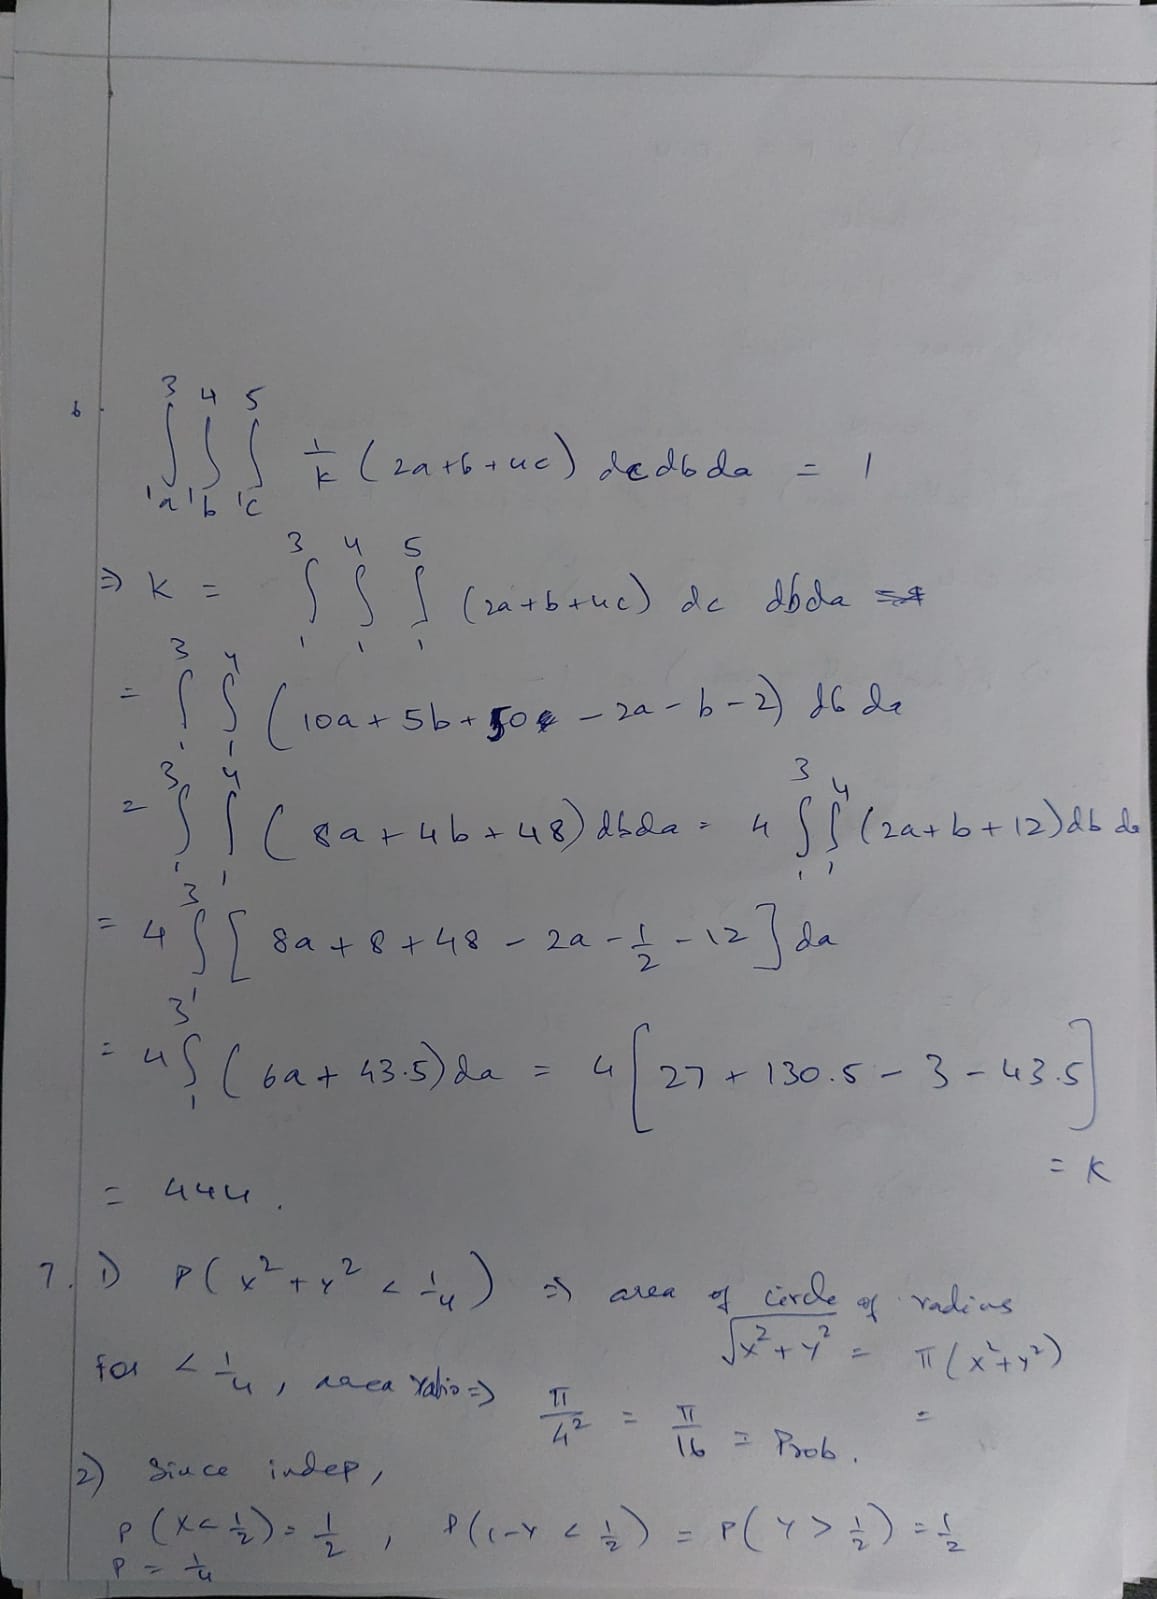 6. ∫₁ₐ³ ∫₁b⁴ ∫₁c⁵ 1/k (2a+b+4c) dc db da = 1
⇒ K = ∫₁³ ∫₁⁴ ∫₁⁵ (2a+b+4c) dc db da
= ∫₁³ ∫₁⁴ (10a + 5b + 50 - 2a - b - 2) db da
= ∫₁³ ∫₁⁴ (8a + 4b + 48) db da = 4 ∫₁³ ∫₁⁴ (2a + b + 12) db da
= 4 ∫₁³ [8a + 8 + 48 - 2a - 1/2 - 12] da
= 4 ∫₁³ (6a + 43.5) da = 4 [27 + 130.5 - 3 - 43.5]
= K
= 444.
7. 1) P(x² + y² < 1/4) ⇒ area of circle of radius
√x² + y² = π(x² + y²)
for < 1/4, area ratio ⇒ π/4² = π/16 = Prob. =
2) Since indep,
P(X < 1/2) = 1/2, P(1-Y < 1/2) = P(Y > 1/2) = 1/2
P = 1/4